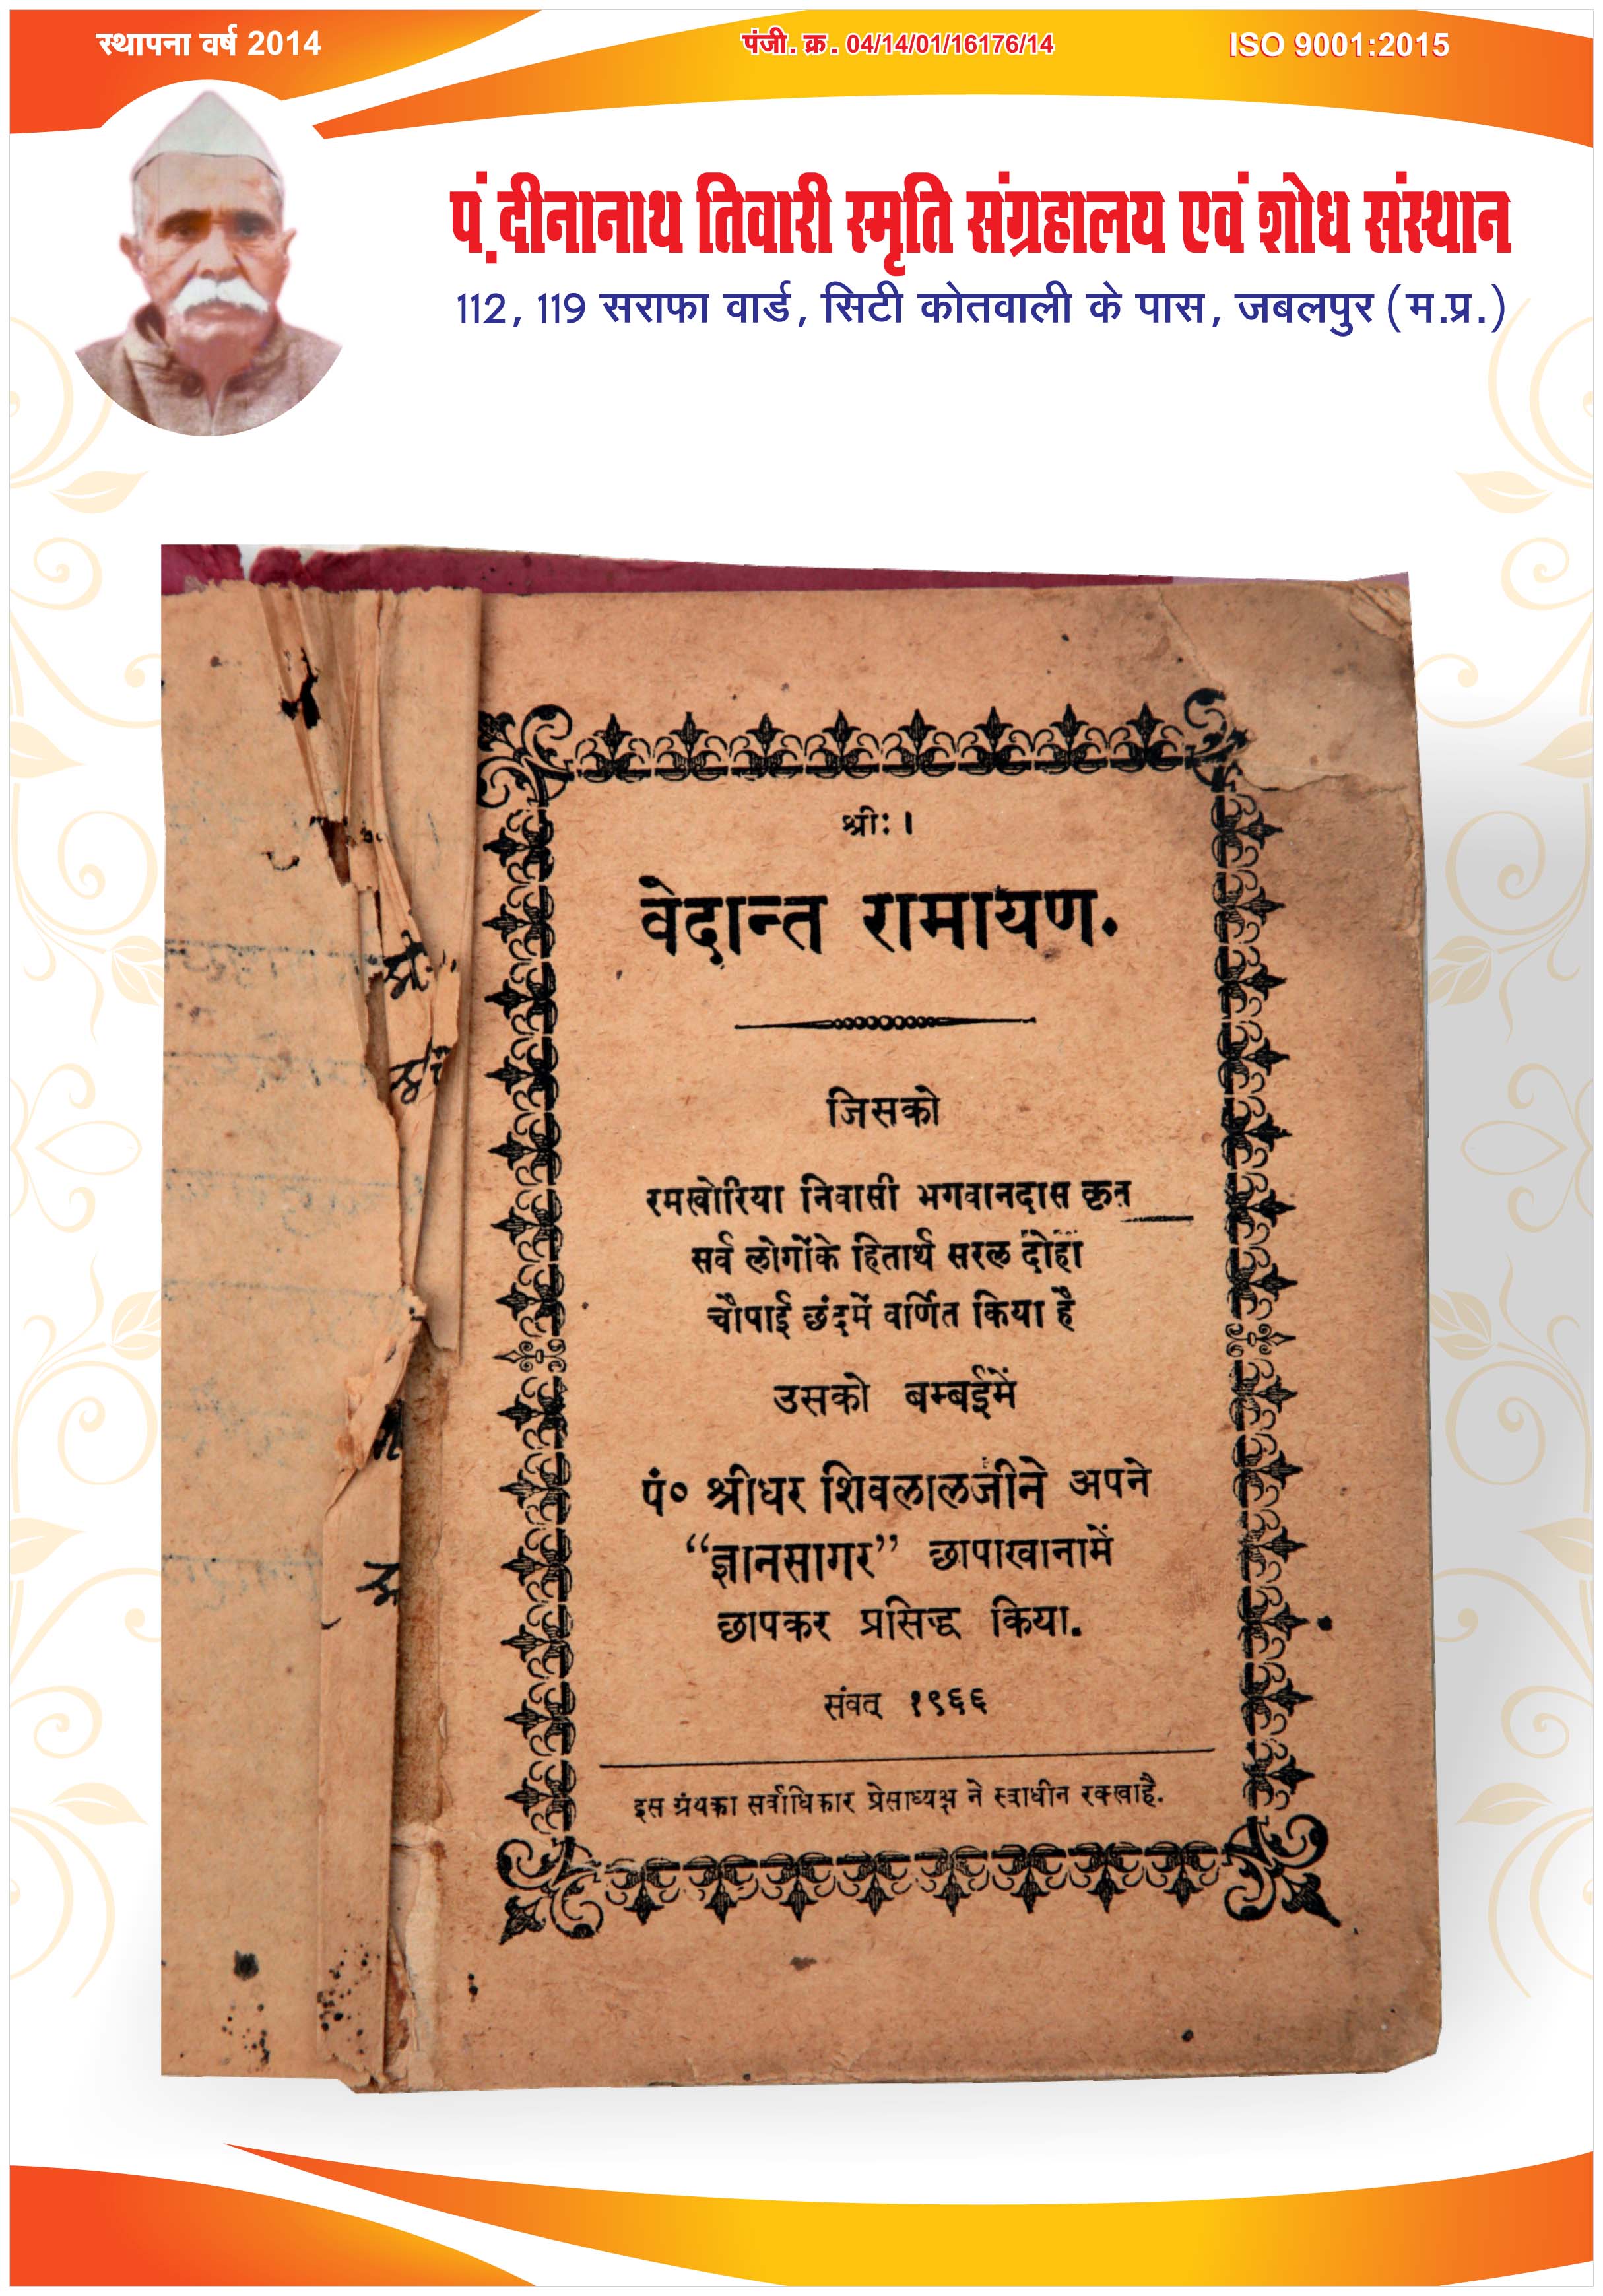 स्थापना वर्ष 2014
पंजी. क्र. 04/14/01/16176/14
ISO 9001:2015
पं. दीनानाथ तिवारी स्मृति संग्रहालय एवं शोध संस्थान
112, 119 सराफा वार्ड, सिटी कोतवाली के पास, जबलपुर (म.प्र.)
श्रीः।
वेदान्त रामायण.
जिसको
रमखोरिया निवासी भगवानदास कृत
सर्व लोगोंके हितार्थ सरल दोहा
चौपाई छंदमें वर्णित किया है
उसको बम्बईमें
पं० श्रीधर शिवलालजीने अपने
“ज्ञानसागर” छापाखानामें
छापकर प्रसिद्ध किया.
संवत् १९६६
इस ग्रंथका सर्वाधिकार प्रेसाध्यक्ष ने स्वाधीन रक्खाहै.